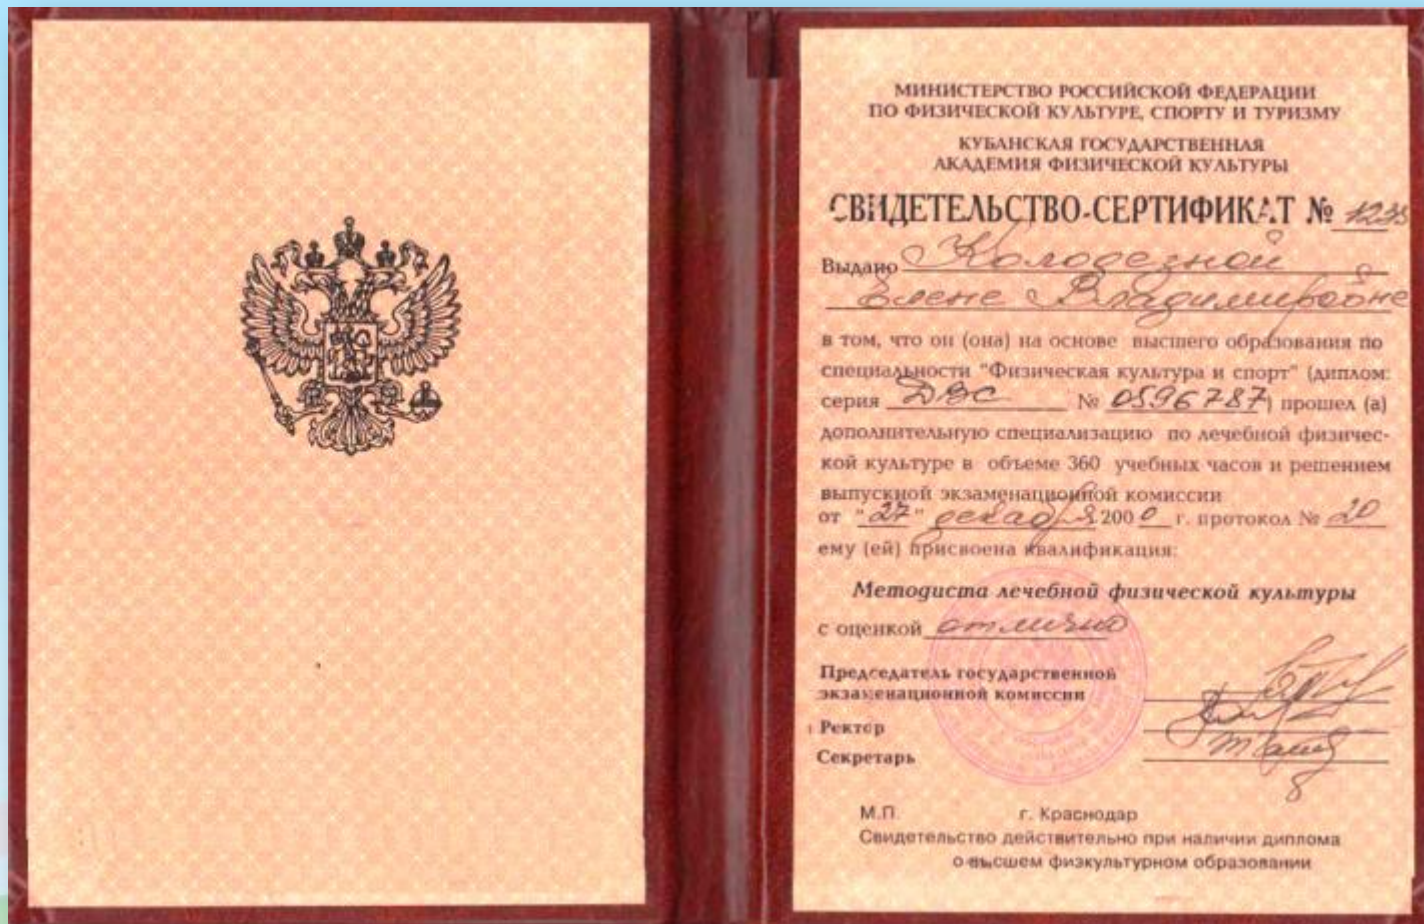 МИНИСТЕРСТВО РОССИЙСКОЙ ФЕДЕРАЦИИ
ПО ФИЗИЧЕСКОЙ КУЛЬТУРЕ, СПОРТУ И ТУРИЗМУ
КУБАНСКАЯ ГОСУДАРСТВЕННАЯ
АКАДЕМИЯ ФИЗИЧЕСКОЙ КУЛЬТУРЫ
СВИДЕТЕЛЬСТВО-СЕРТИФИКАТ №
Выдано Колодезной
Елене Владимировне
в том, что он (она) на основе высшего образования по
специальности "Физическая культура и спорт" (диплом:
серия ДВС № 0596787) прошел (а)
дополнительную специализацию по лечебной физичес-
кой культуре в объеме 360 учебных часов и решением
выпускной экзаменационной комиссии
от "27" декабря 2000 г. протокол № 20
ему (ей) присвоена квалификация:
Методиста лечебной физической культуры
с оценкой отлично
Председатель государственной
экзаменационной комиссии
Ректор
Секретарь
М.П. г. Краснодар
Свидетельство действительно при наличии диплома
о высшем физкультурном образовании